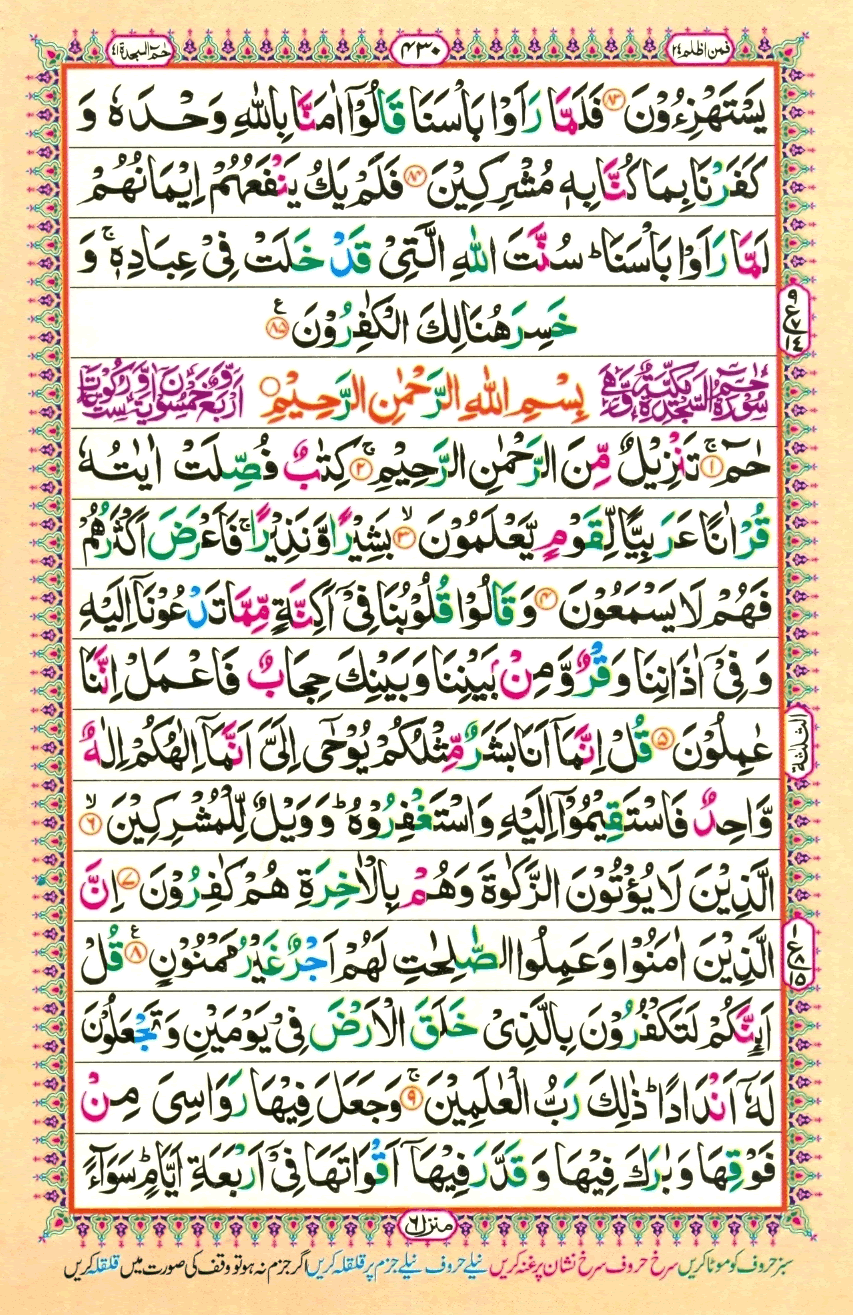 فمن اظلم ٢٤ ٤٣٠ حٰمٓ السجدة ٤١
يَسْتَهْزِءُوْنَ ﴿۸۳﴾ فَلَمَّا رَاَوْا بَاْسَنَا قَالُوْۤا اٰمَنَّا بِاللّٰهِ وَحْدَهٗ وَ
كَفَرْنَا بِمَا كُنَّا بِهٖ مُشْرِكِيْنَ ﴿۸۴﴾ فَلَمْ يَكُ يَنْفَعُهُمْ اِيْمَانُهُمْ
لَمَّا رَاَوْا بَاْسَنَا ؕ سُنَّتَ اللّٰهِ الَّتِيْ قَدْ خَلَتْ فِيْ عِبَادِهٖ ۚ وَ
خَسِرَ هُنَالِكَ الْكٰفِرُوْنَ ﴿۸۵﴾ ع
سُوْرَةُ حٰمٓ السَّجْدَةِ مَكِّيَّةٌ وَّهِيَ بِسْمِ اللّٰهِ الرَّحْمٰنِ الرَّحِيْمِ اَرْبَعٌ وَّخَمْسُوْنَ اٰيَةً وَّسِتُّ رُكُوْعَاتٍ
حٰمٓ ﴿۱﴾ ۚ تَنْزِيْلٌ مِّنَ الرَّحْمٰنِ الرَّحِيْمِ ﴿۲﴾ ۚ كِتٰبٌ فُصِّلَتْ اٰيٰتُهٗ
قُرْاٰنًا عَرَبِيًّا لِّقَوْمٍ يَّعْلَمُوْنَ ﴿۳﴾ ۙ بَشِيْرًا وَّنَذِيْرًا ۚ فَاَعْرَضَ اَكْثَرُهُمْ
فَهُمْ لَا يَسْمَعُوْنَ ﴿۴﴾ وَقَالُوْا قُلُوْبُنَا فِيْۤ اَكِنَّةٍ مِّمَّا تَدْعُوْنَاۤ اِلَيْهِ
وَفِيْۤ اٰذَانِنَا وَقْرٌ وَّمِنْۢ بَيْنِنَا وَبَيْنِكَ حِجَابٌ فَاعْمَلْ اِنَّنَا
عٰمِلُوْنَ ﴿۵﴾ قُلْ اِنَّمَاۤ اَنَا بَشَرٌ مِّثْلُكُمْ يُوْحٰۤى اِلَيَّ اَنَّمَاۤ اِلٰهُكُمْ اِلٰهٌ
وَّاحِدٌ فَاسْتَقِيْمُوْۤا اِلَيْهِ وَاسْتَغْفِرُوْهُ ؕ وَوَيْلٌ لِّلْمُشْرِكِيْنَ ﴿۶﴾ ۙ
الَّذِيْنَ لَا يُؤْتُوْنَ الزَّكٰوةَ وَهُمْ بِالْاٰخِرَةِ هُمْ كٰفِرُوْنَ ﴿۷﴾ اِنَّ
الَّذِيْنَ اٰمَنُوْا وَعَمِلُوا الصّٰلِحٰتِ لَهُمْ اَجْرٌ غَيْرُ مَمْنُوْنٍ ﴿۸﴾ ع قُلْ
اَئِنَّكُمْ لَتَكْفُرُوْنَ بِالَّذِيْ خَلَقَ الْاَرْضَ فِيْ يَوْمَيْنِ وَتَجْعَلُوْنَ
لَهٗۤ اَنْدَادًا ؕ ذٰلِكَ رَبُّ الْعٰلَمِيْنَ ﴿۹﴾ ۚ وَجَعَلَ فِيْهَا رَوَاسِيَ مِنْ
فَوْقِهَا وَبٰرَكَ فِيْهَا وَقَدَّرَ فِيْهَاۤ اَقْوَاتَهَا فِيْۤ اَرْبَعَةِ اَيَّامٍ ؕ سَوَآءً
٩ ع ١٤
الثلثة
ع ٨ ١٥
منزل ٦
سبز حروف کو موٹا کریں سرخ حروف سرخ نشان پر غنہ کریں نیلے حروف نیلے جزم پر قلقلہ کریں اگر جزم نہ ہو تو وقف کی صورت میں قلقلہ کریں